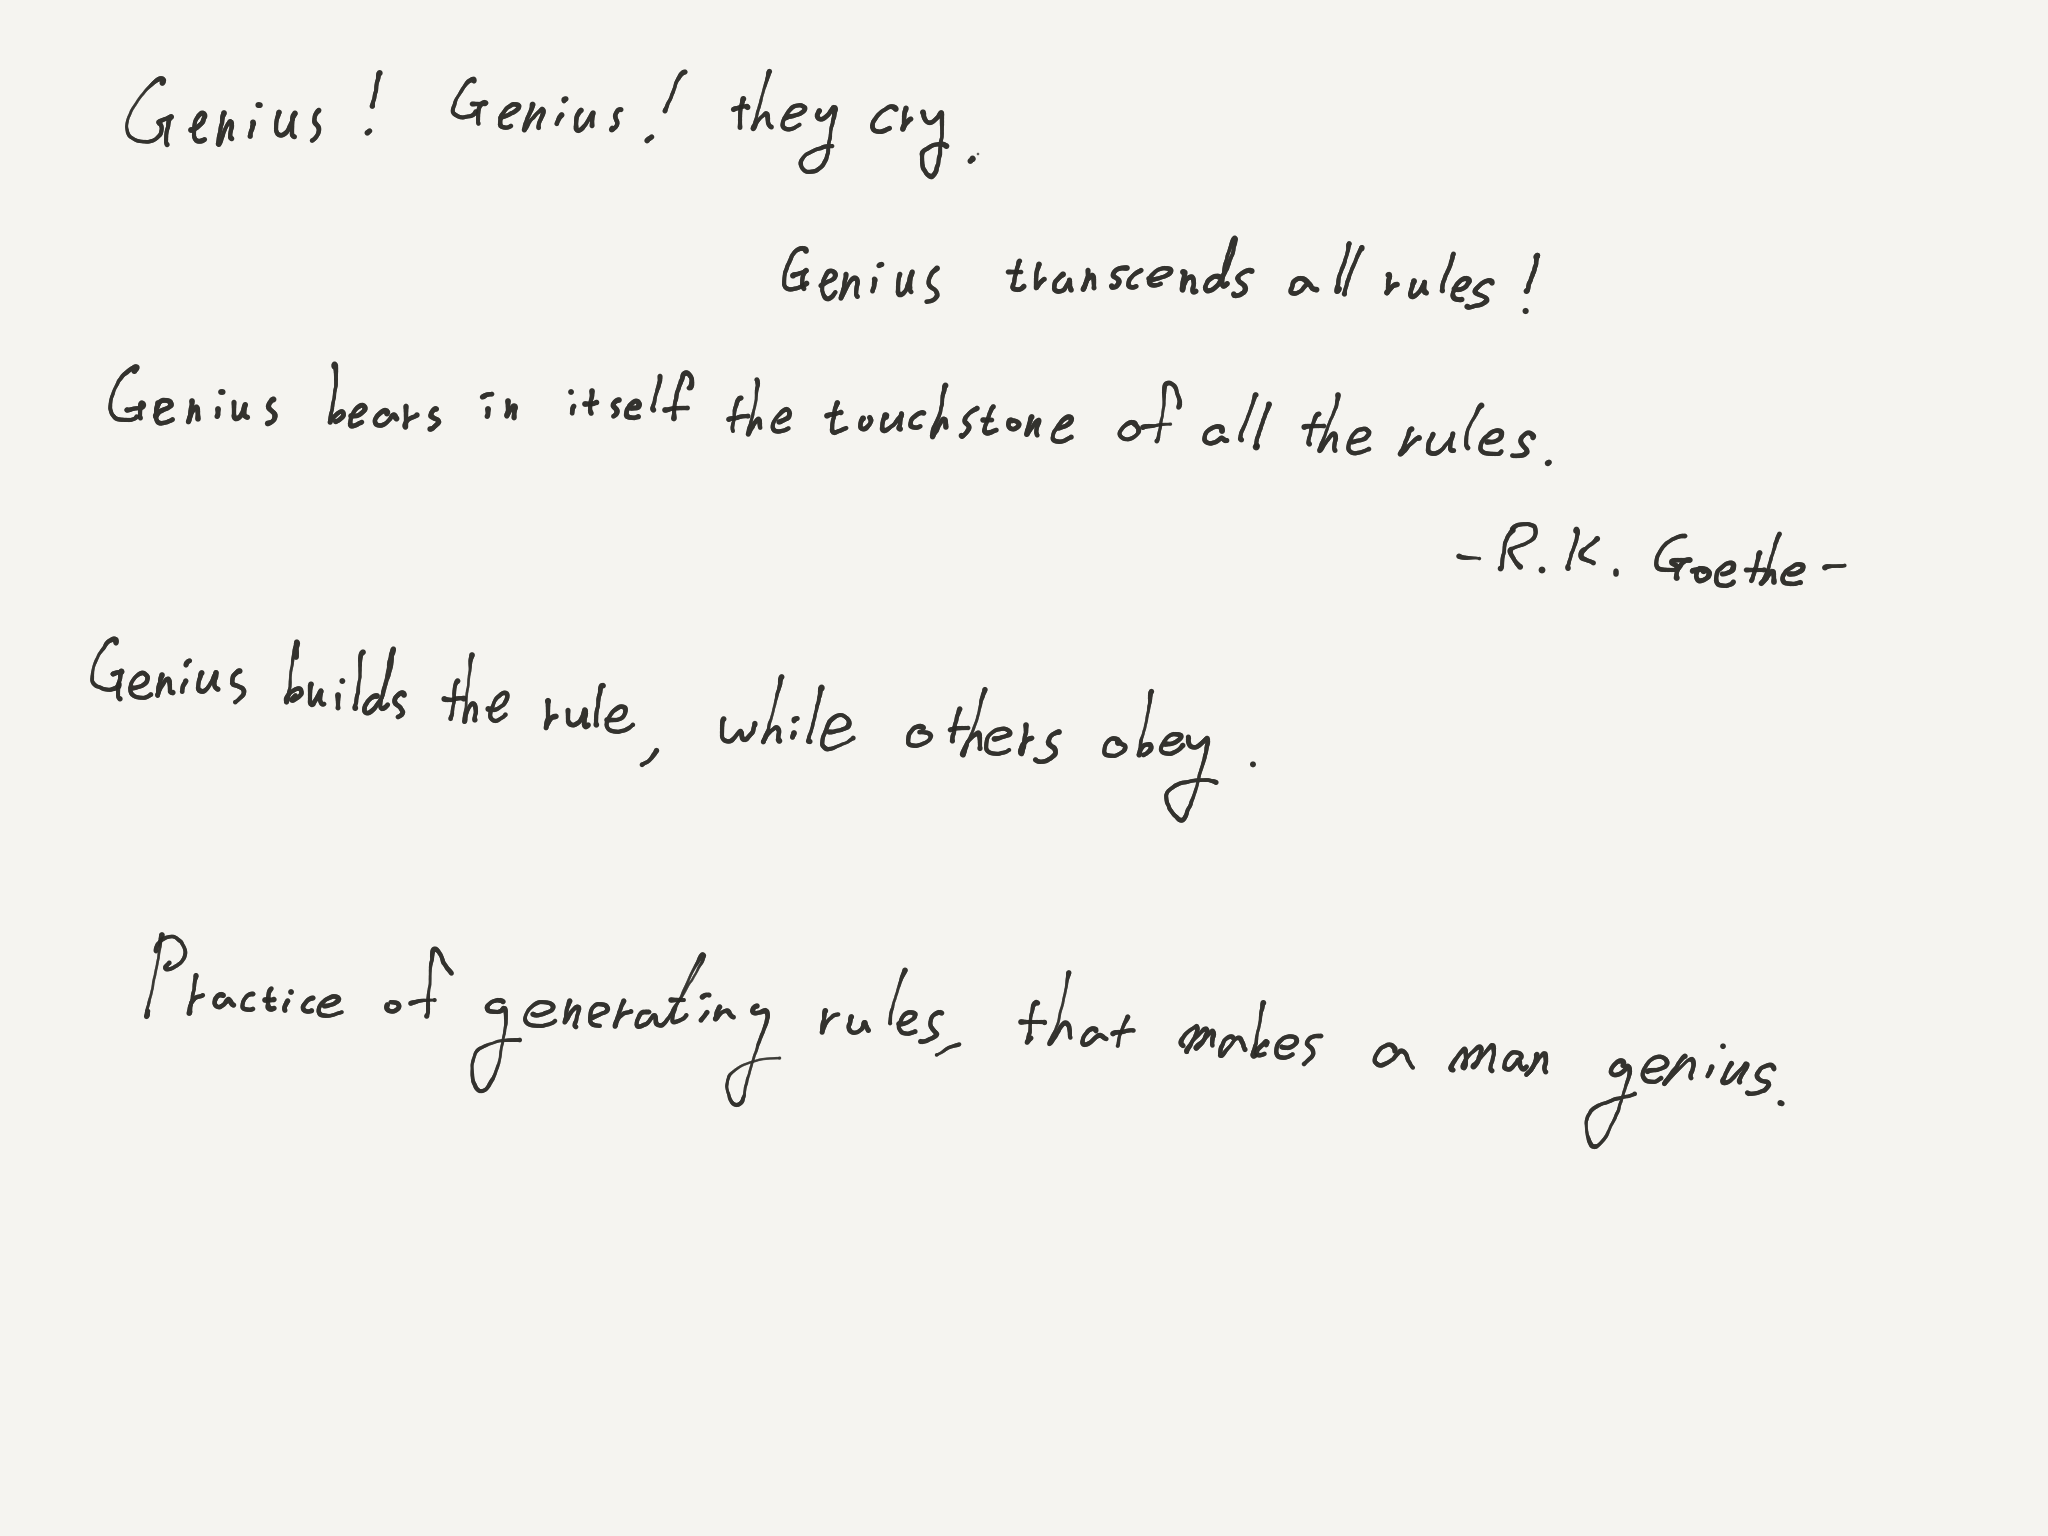 Genius! Genius! they cry.
Genius transcends all rules!
Genius bears in itself the touchstone of all the rules.
- R. K. Goethe -
Genius builds the rule, while others obey.
Practice of generating rules, that makes a man genius.